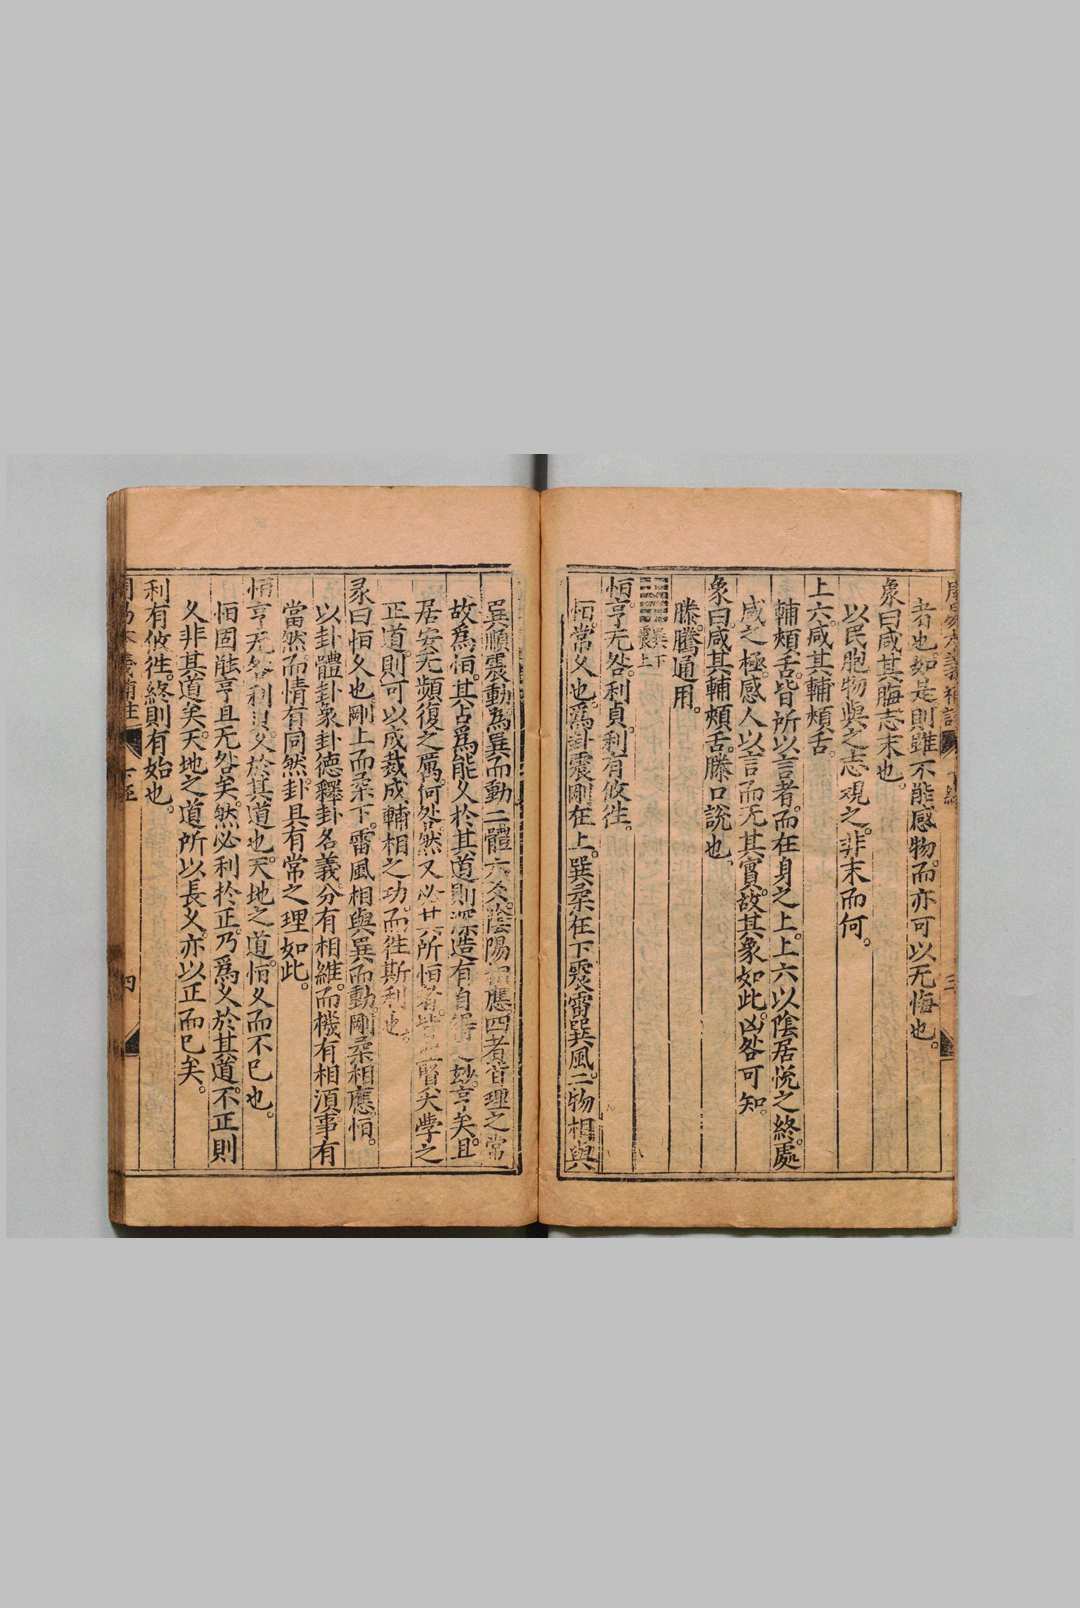 者也如是則雖不能感物而亦可以无悔也。
象曰咸其脢志末也。
以民胞物與之志觀之。非末而何。
上六。咸其輔頰舌。
輔頰舌。皆所以言者。而在身之上。上六以陰居悅之終。處
咸之極。感人以言而无其實。故其象如此。凶咎可知。
象曰。咸其輔頰舌。滕口說也。
滕。騰通用。
巽下
震上
恒。亨。无咎。利貞。利有攸往。
恒。常久也。爲卦震剛在上。巽柔在下。震雷巽風。二物相與
巽順震動。為巽而動。二體六爻。陰陽相應。四者皆理之常
故爲恒。其占爲能久於其道。則深造有自得之妙。亨矣。且
居安无頻復之厲。何咎。然又必其所恒者皆聖賢矣學之
正道。則可以成裁成輔相之功。而往斯利也。
彖曰恒久也剛上而柔下。雷風相與巽而動。剛柔相應恒。
以卦體卦象卦德釋卦名義。分有相維。而機有相湏事有
當然。而情有同然。卦具有常之理如此。
恒亨无咎利貞。久於其道也。天地之道。恒久而不已也。
恒固能亨且无咎矣。然必利於正。乃爲久於其道。不正則
久非其道矣。天地之道所以長久。亦以正而已矣。
利有攸往。終則有始也。
四